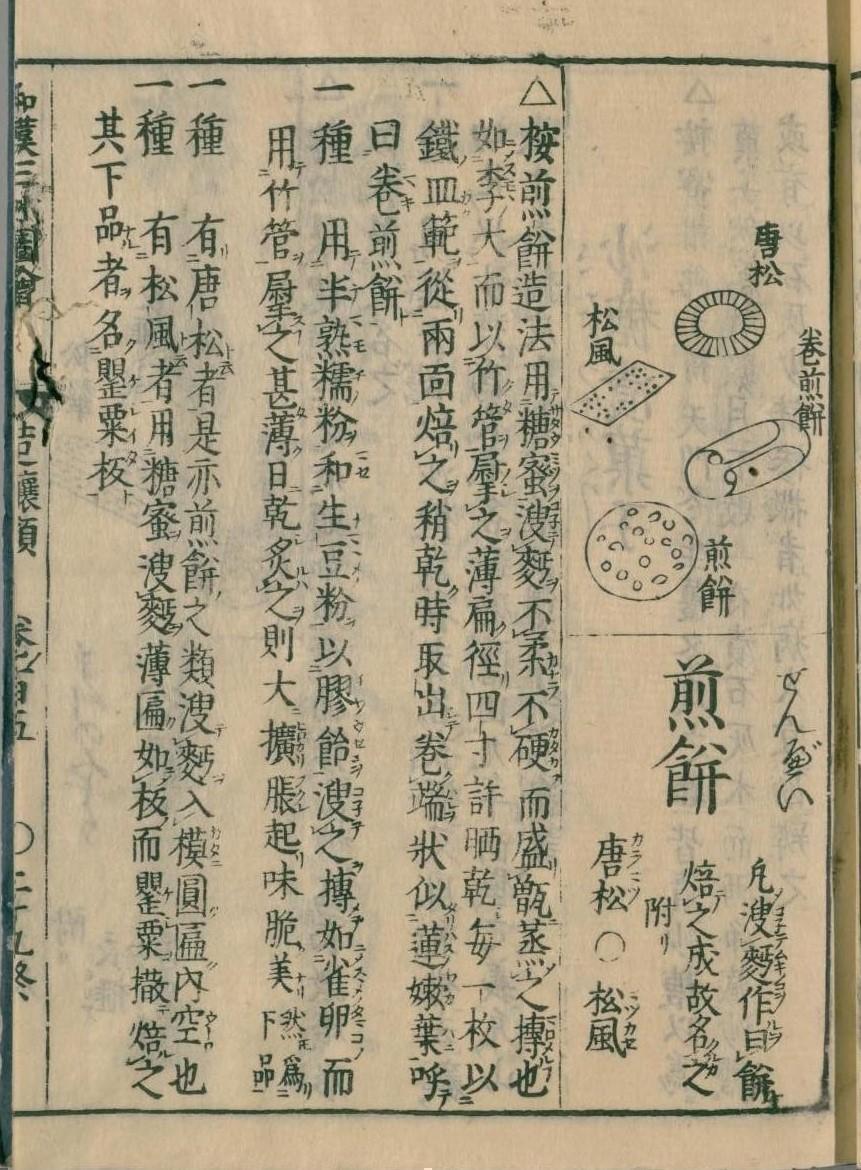 唐松
卷煎餅
松風
煎餅
せんべい
煎餅
凢溲麪作曰餅
焙之成故名之
附リ
唐松 ○ 松風
△桉煎餅造法用糖蜜溲麪不柔不硬而盛甑蒸之摶也
如李大而以竹管㞠之薄扁徑四寸許晒乾每一枚以
鐵皿範從兩面焙之稍乾時取出卷端狀似蓮嫩葉呼
曰卷煎餅
一種 用半熟糯粉和生豆粉以膠飴溲之摶如雀卵而
用竹管㞠之甚薄日乾炙之則大擴脹起味脆美然爲下品
一種 有唐松者是亦煎餅之類溲麪入模圓匾内空也
一種 有松風者用糖蜜溲麪薄匾如板而罌粟撒焙之
其下品者名罌粟板
和漢三才圖會
造釀類 卷百五 ○二十九終